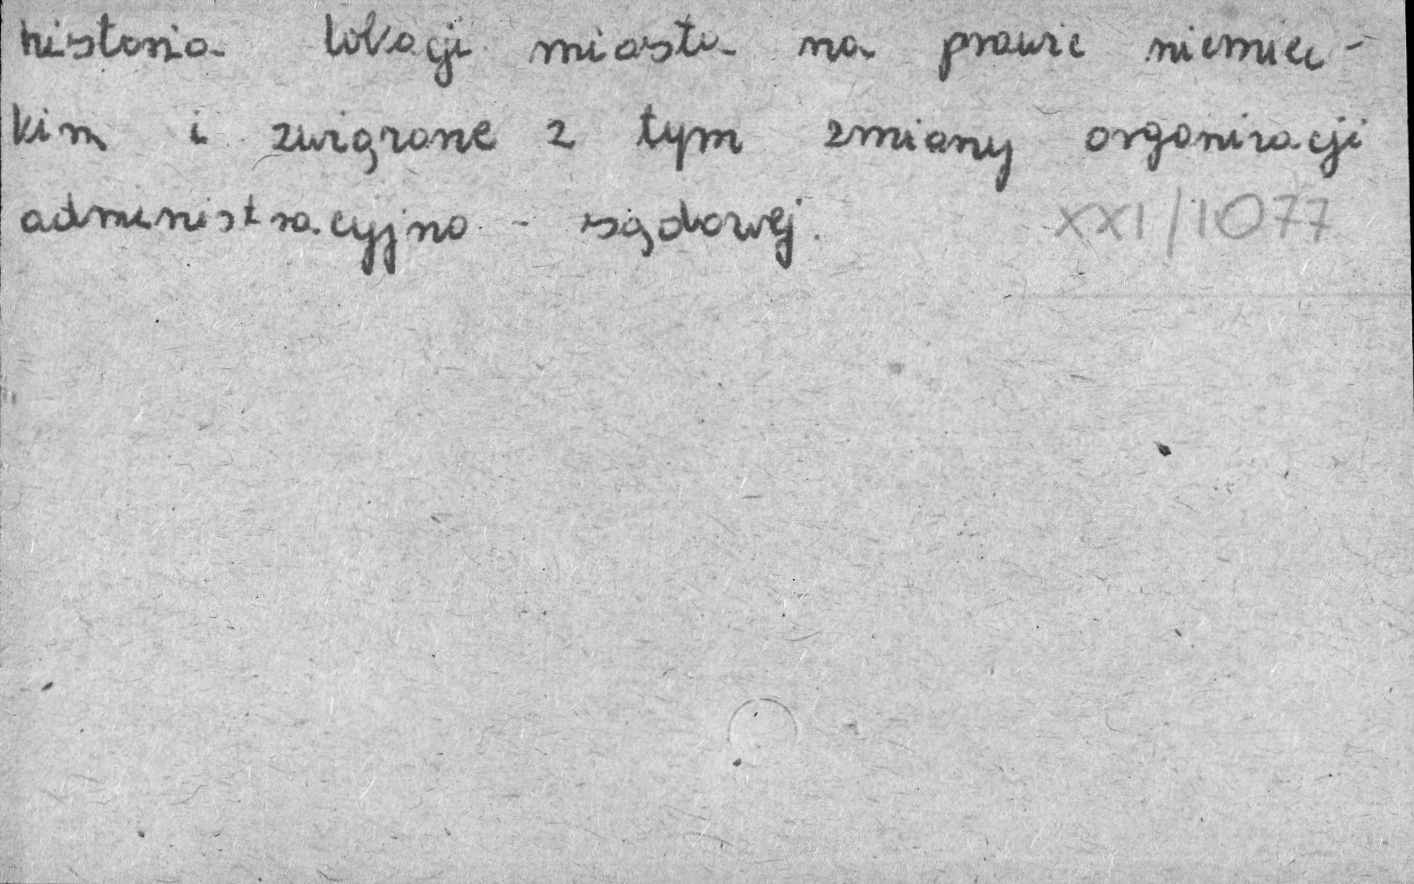 historia lokacji miasta na prawie niemiec-
kim i związane z tym zmiany organizacji
administracyjno - sądowej.
XXI/1077